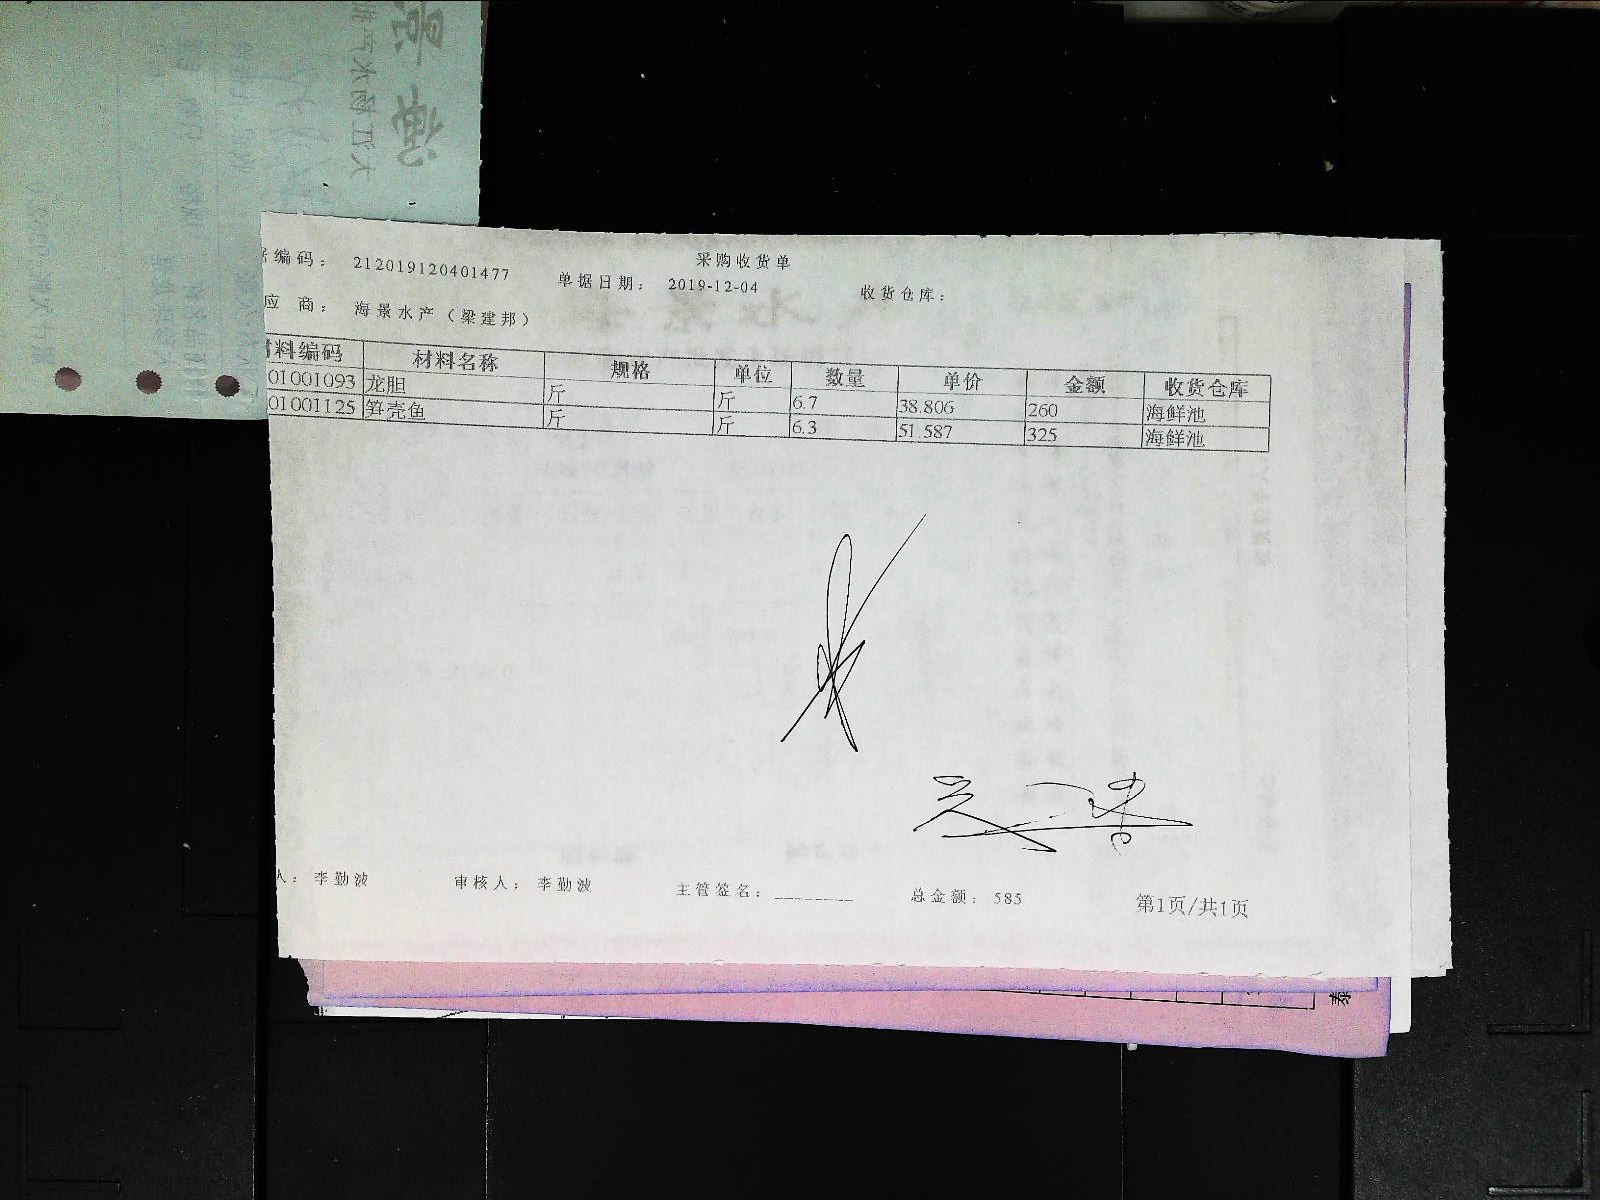 采购收货单
编码： 212019120401477 单据日期： 2019-12-04 收货仓库：
应 商： 海景水产（梁建邦）
材料编码 材料名称 规格 单位 数量 单价 金额 收货仓库
01001093 龙胆 斤 斤 6.7 38.806 260 海鲜池
01001125 笋壳鱼 斤 斤 6.3 51.587 325 海鲜池
人： 李勤波 审核人： 李勤波 主管签名：________ 总金额： 585 第1页/共1页
泰